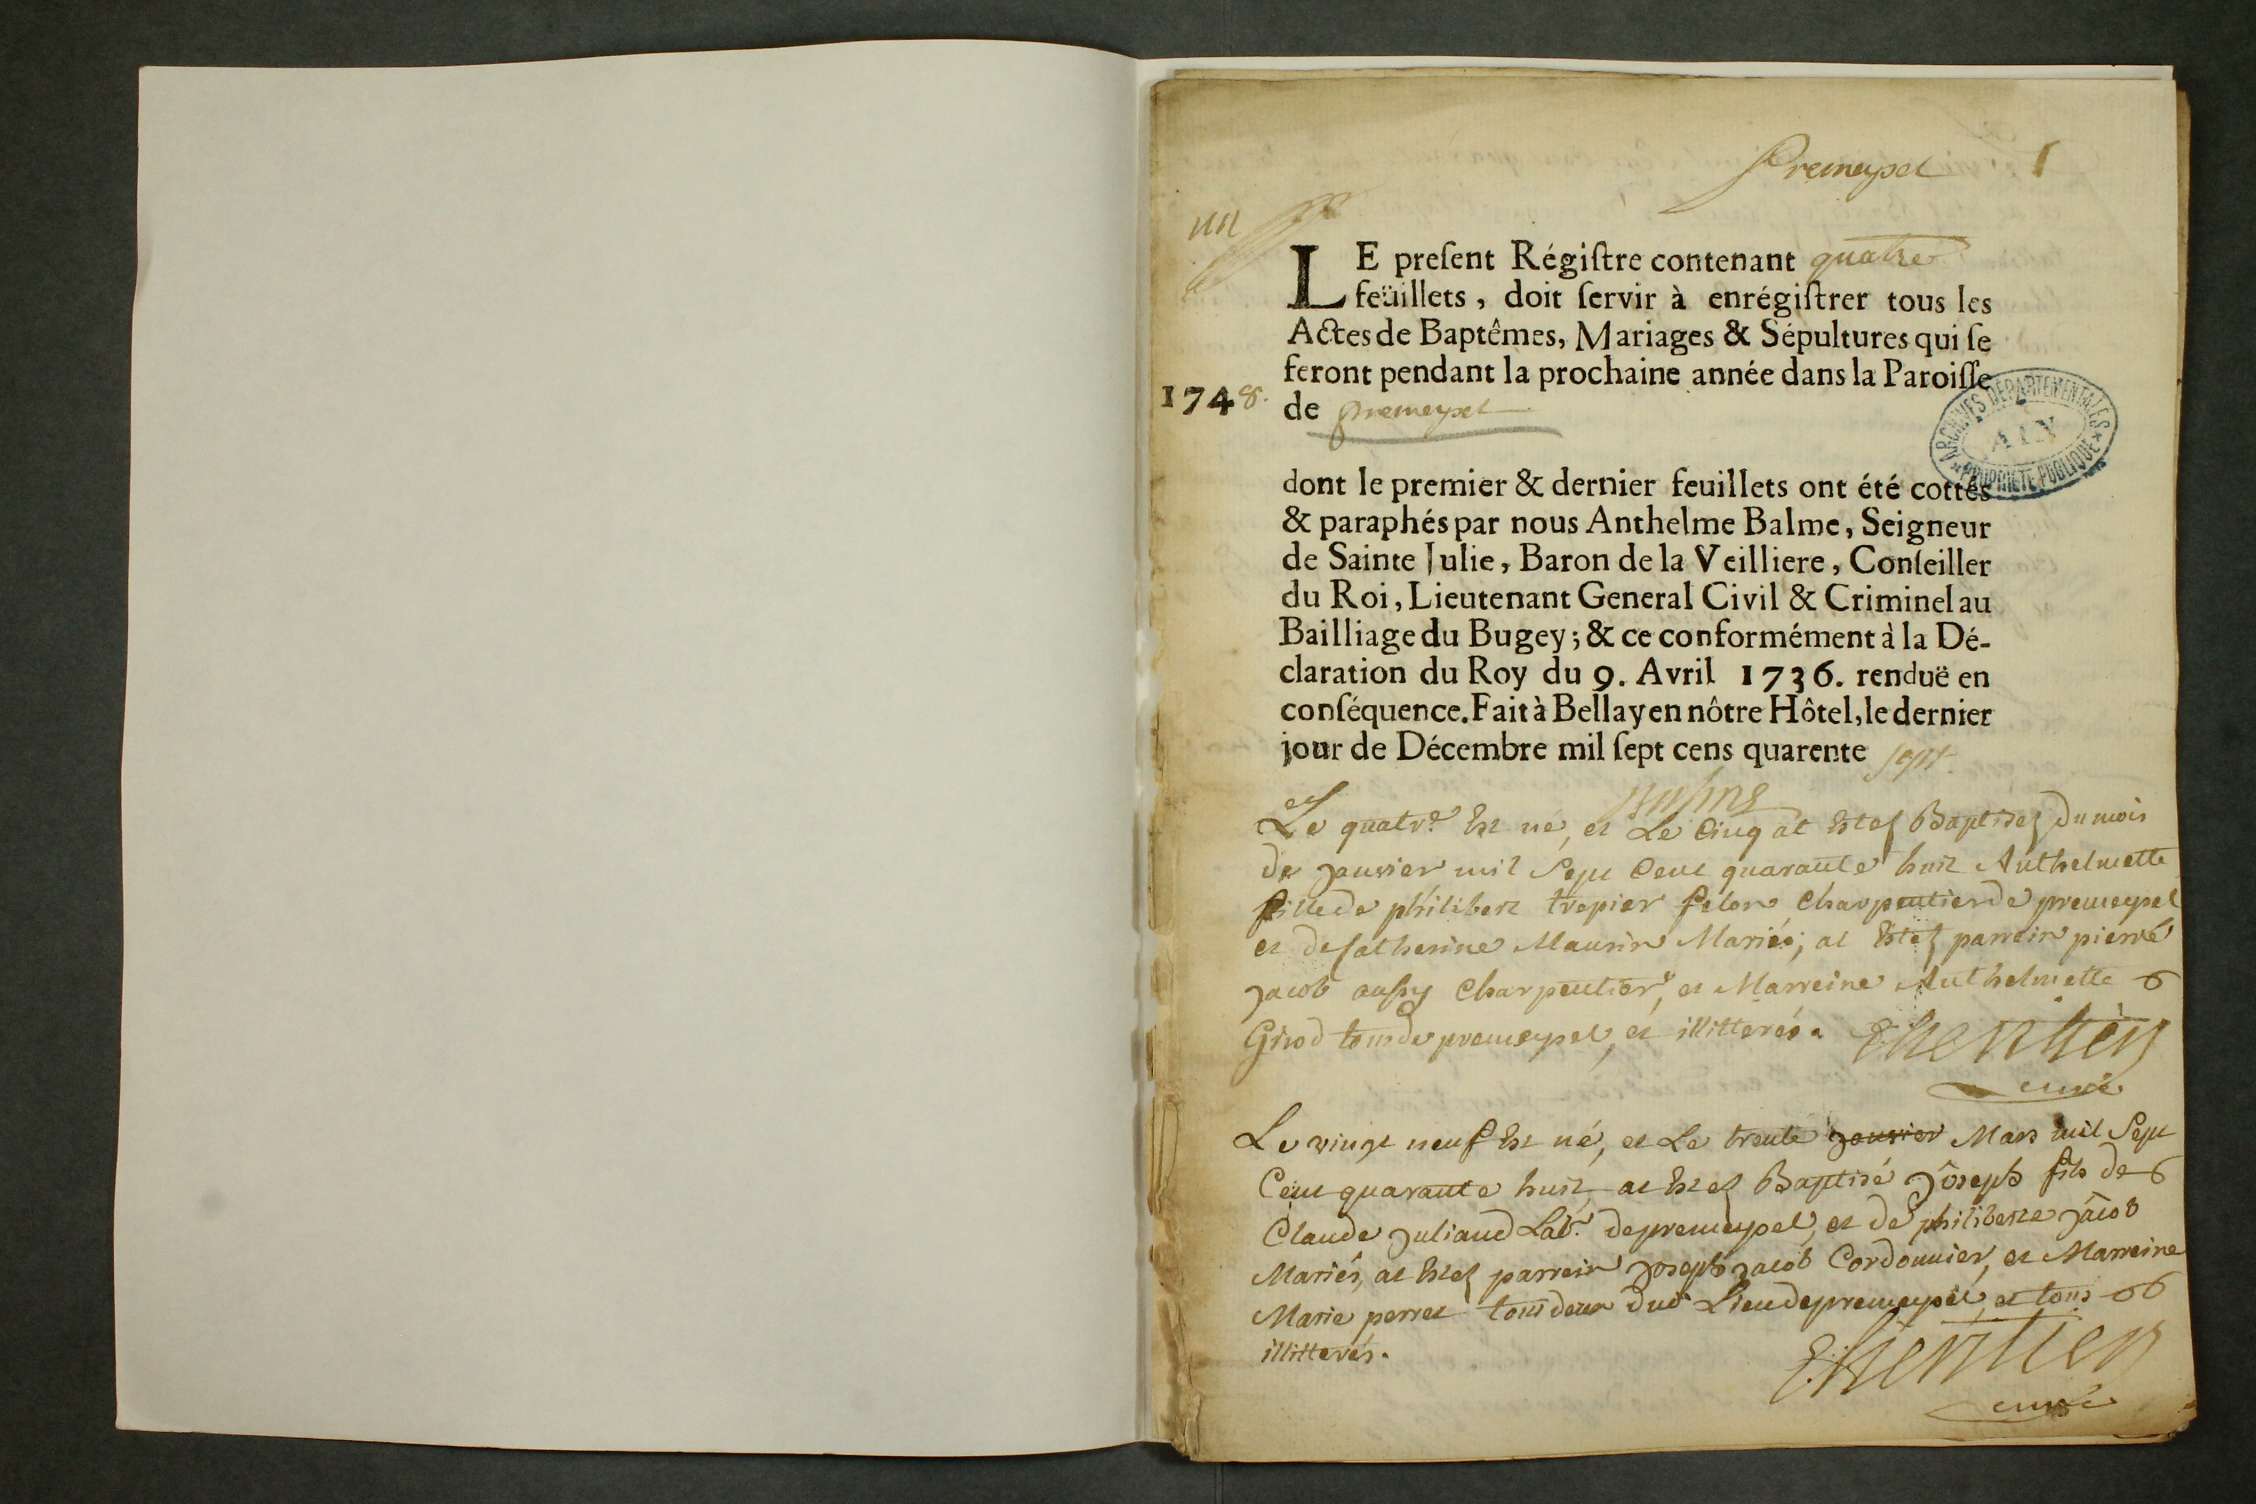 Premeysel 1
un
LE preſent Régiſtre contenant quatre
feüillets, doit ſervir à enrégiſtrer tous les
Actes de Baptêmes, Mariages & Sépultures qui ſe
feront pendant la prochaine année dans la Paroiſſe
1748. de premeysel
ARCHIVES DEPARTEMENTALES
AIN
PROPRIETE PUBLIQUE
dont le premier & dernier feuillets ont été cottés
& paraphés par nous Anthelme Balme, Seigneur
de Sainte Julie, Baron de la Veilliere, Conſeiller
du Roi, Lieutenant General Civil & Criminel au
Bailliage du Bugey; & ce conformément à la Dé-
claration du Roy du 9. Avril 1736. renduë en
conſéquence. Fait à Bellay en nôtre Hôtel, le dernier
jour de Décembre mil ſept cens quarente sept.
Balme
Le quatre Est né, et Le Cinq at Estez Baptisez Du mois
De Janvier mil Sept Cent quarante huit Anthelmette
fille de philibert trepier Charpentier de premeysel
et de Catherine Maurin Mariés; at Estez parrein pierre
Jacob aussy Charpentier, et Marreine Anthelmette
Girod tous de premeysel, et illitterés.
curé
Le vingt neuf Est né, et Le trente janvier Mars mil Sept
Cent quarante huit, at Estez Baptisé Joseph fils de
Claude Juliand Labr. de premeysel, et de philiberte Jacob
Mariés, at Estez parrein Joseph Jacob Cordonnier, et Marreine
Marie perret tous deux dud Lieu de premeysel, et tous
illitterés.
curé